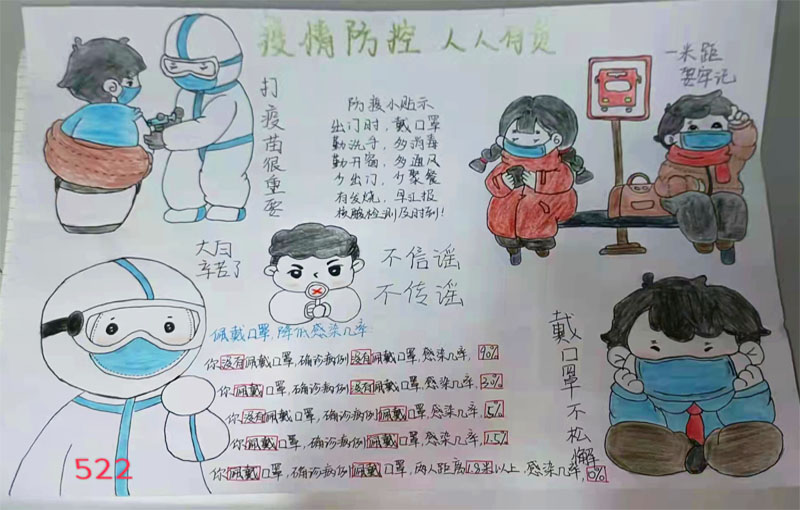 疫情防控 人人有责
打疫苗很重要
防疫小贴示
出门时，戴口罩
勤洗手，多消毒
勤开窗，多通风
少出门，少聚餐
有发烧，早汇报
核酸检测及时到！
一米距
要牢记
大白
辛苦了
不信谣
不传谣
戴口罩不松懈
佩戴口罩，降低感染几率：
你没有佩戴口罩，确诊病例没有佩戴口罩，感染几率，90%
你佩戴口罩，确诊病例没有佩戴口罩，感染几率，30%
你没有佩戴口罩，确诊病例佩戴口罩，感染几率，5%
你佩戴口罩，确诊病例佩戴口罩，感染几率，1.5%
你佩戴口罩，确诊病例佩戴口罩，两人距离1.8米以上，感染几率，0%
522